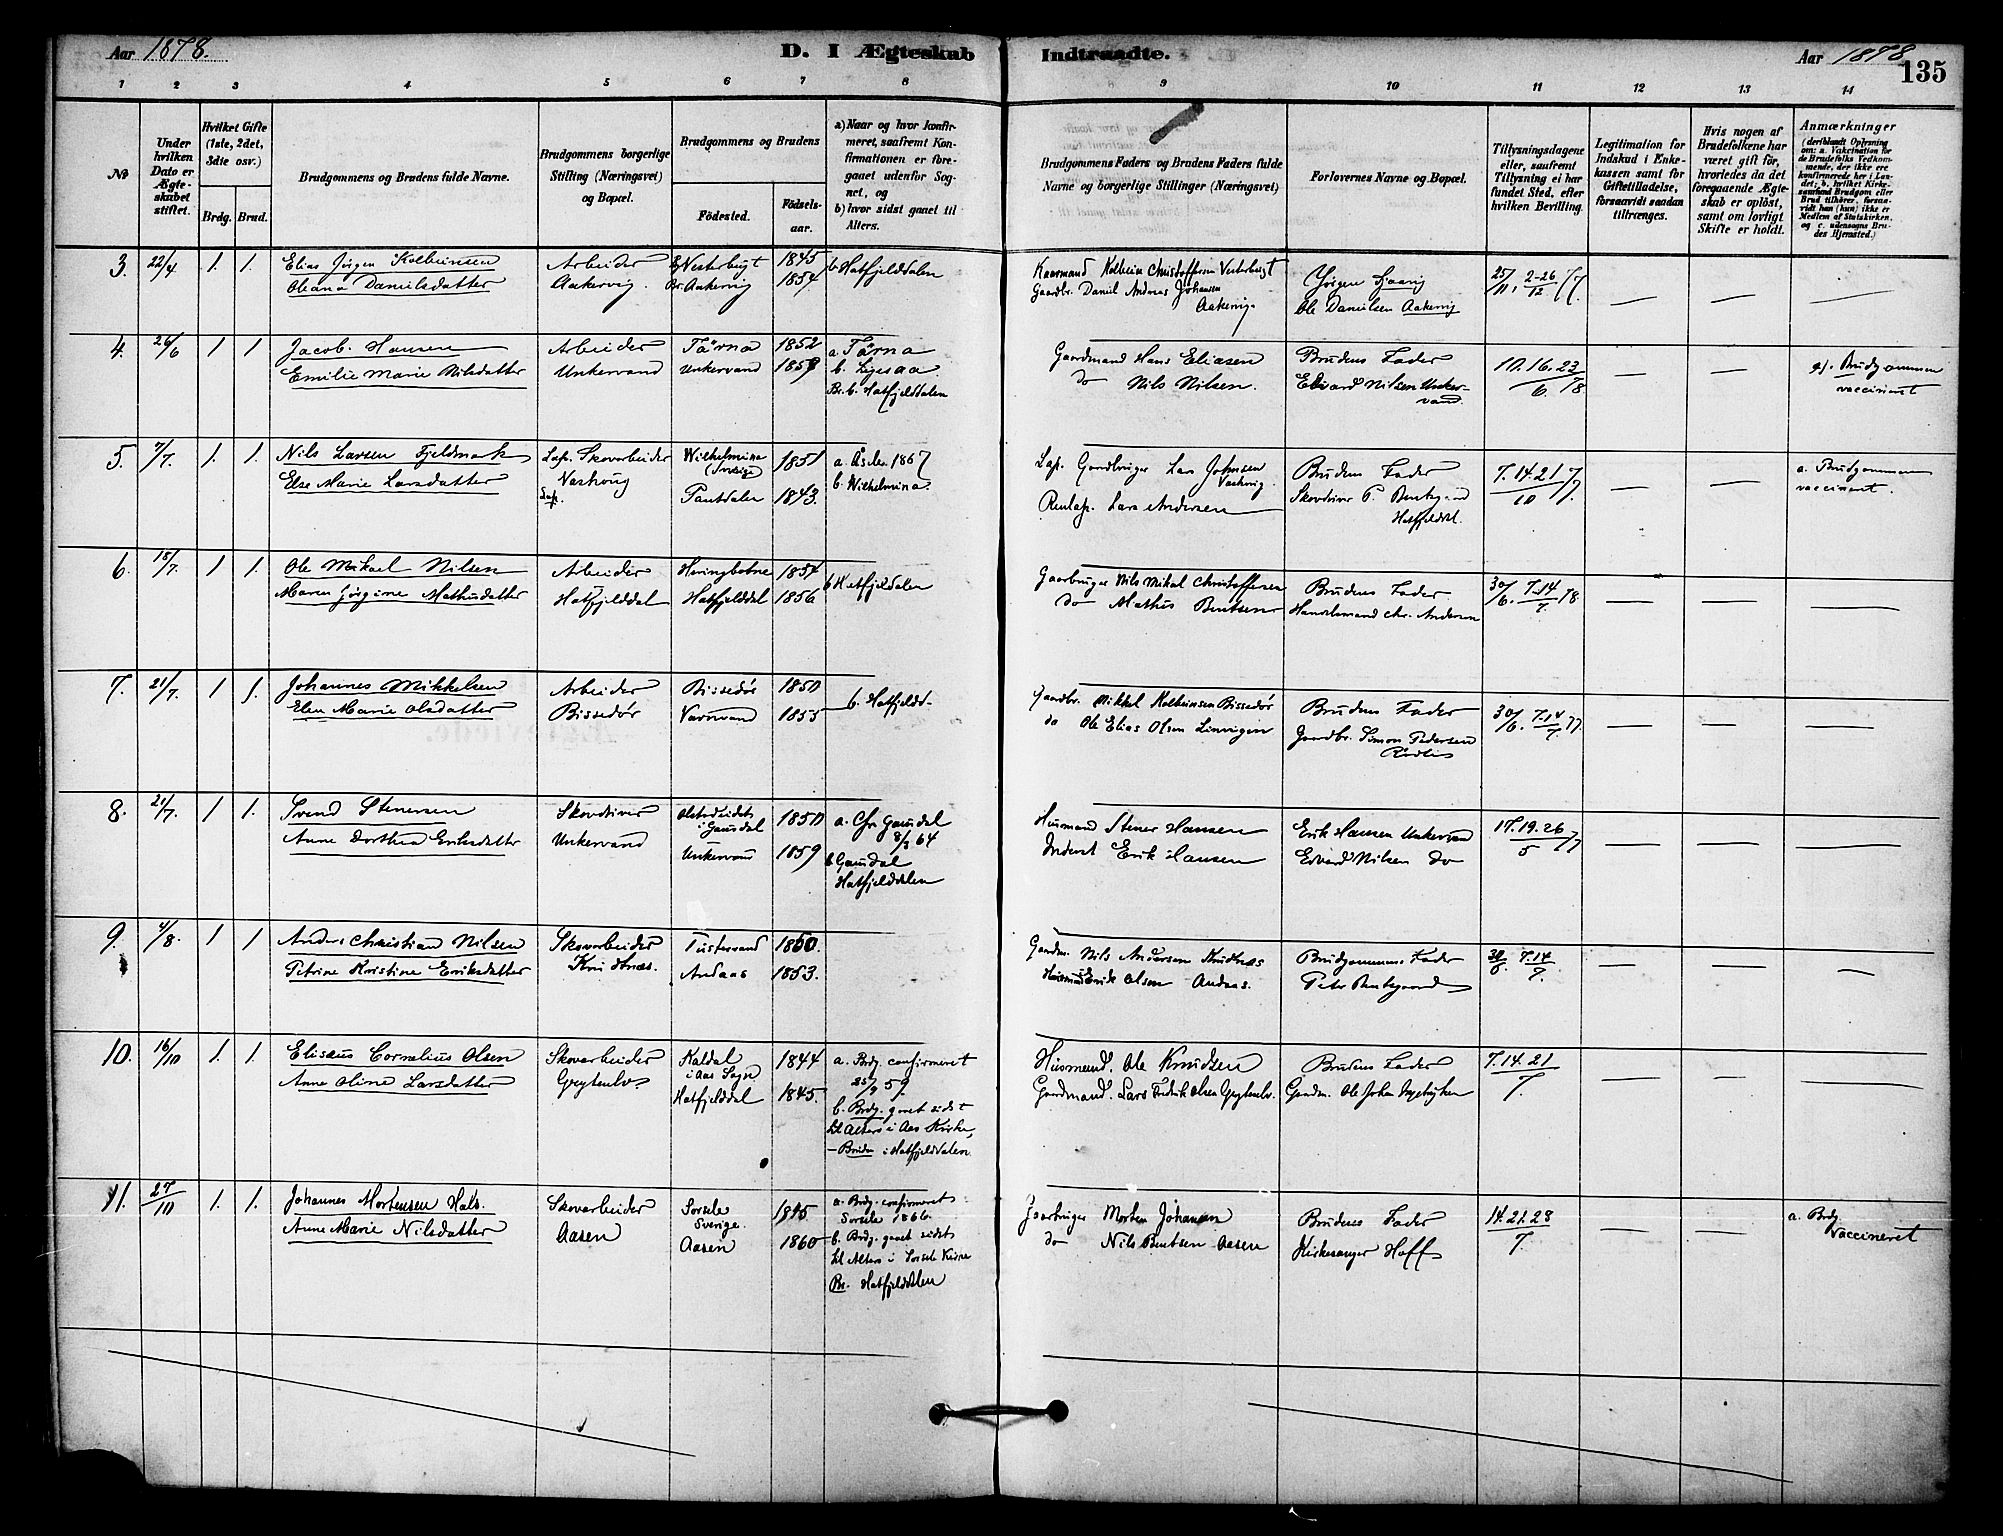 Aar 1878.
D. I Ægteskab Indtraadte.
Aar 1878
135
1 2 3 4 5 6 7 8 9 10 11 12 13 14
No
Under hvilken Dato er Ægteskabet stiftet.
Hvilket Gifte (1ste, 2det, 3die osv.)
Brdg. Brud.
Brudgommens og Brudens fulde Navne.
Brudgommens borgerlige Stilling (Næringsvei) og Bopæl.
Brudgommens og Brudens
Fødested.
Fødselsaar.
a) Naar og hvor konfirmeret, saafremt Konfirmationen er foregaaet udenfor Sognet, og
b) hvor sidst gaaet til Alters.
Brudgommens Faders og Brudens Faders fulde Navne og borgerlige Stillinger (Næringsvei)
Forlovernes Navne og Bopæl.
Tillysningsdagene eller, saafremt Tillysning ei har fundet Sted, efter hvilken Bevilling.
Legitimation for Indskud i Enkekassen samt for Giftetilladelse, forsaavidt saadan tiltrænges.
Hvis nogen af Brudefolkene har været gift før, hvorledes da det foregaaende Ægteskab er opløst, samt om lovligt Skifte er holdt.
Anmærkninger
(deriblandt Oplysning om: a. Vakcination for de Brudefolks Vedkommende, der ikke ere konfirmerede her i Landet; b. hvilket Kirkesamfund Brudgom eller Brud tilhører, forsaavidt han (hun) ikke er Medlem af Statskirken, og c. udensogns Brudes Hjemsted.)
3. 22/4 1. 1. Elias Jørgen Kolbeinsen Arbeider Vesterbugt 1845 b. Hatfjelddalen Kaarmand Kolbein Christoffersen Vesterbugt Jørgen 25/11, 2-26/12 77
Oleana Danielsdatter Aakervig. Br. Aakervig 1854 Gaardbr. Daniel Andreas Johansen Aakervig. Ole Danielsen Aakervig
4. 26/6 1 1 Jacob Hansen Arbeider Tärna 1852 a. Tärna Gaardmand Hans Eliasen Brudens Fader 10. 16. 23/6 78 a). Brudgommen
Emilie Marie Nilsdatter Unkervand Unkervand 1857 b. Br. b. Hatfjelddalen do Nils Nilsen. Edvard Nilsen Unkervand. vaccineret
5. 7/7. 1. 1. Nils Larsen Fjeldmark Lap. Skovarbeider Wilhelmina (Sverige) 1851 a. Åsele. 1867 Lap. Gaardbruger Lars Johnsen Brudens Fader 7. 14. 21/10 77 a. Brudgommen
Else Marie Larsdatter Lap. 1843. b. Wilhelmina. Renlap. Lars Andersen Skovdriver P. Bentsgaard Hatfjeldd. vaccineret.
6. 18/7. 1 1. Ole Mikael Nilsen Arbeider Heringbotne 1854 b Hatfjelddalen Gaarbruger Nils Mikal Christoffersen Brudens Fader 30/6. 7.14/7. 78
Maren Jørgine Mathisdatter Hatfjelddal Hatfjelddal 1856 do Mathis Bentsen Handelsmand Chr. Andersen
7. 21/7. 1 1. Johannes Mikkelsen Arbeider Bissedør 1850 b. Hatfjeldd. Gaardbr. Mikkel Kolbeinsen Bissedør Brudens Fader 30/6. 7.14/7. 77
Elen Marie Olsdatter Bissedør Varnvand 1855 do Ole Elias Olsen Gaardbr. Simon Pedersen
8. 21/7. 1 1. Svend Stenersen Skovdriver i Gausdal 1850 a. Ch. Gausdal 8/3 64 Husmand Stener Hansen Erik Hansen Unkervand 17. 19. 26/5 77
Anne Dorthea Eriksdatter Unkervand Unkervand 1859 b Gausdal Hatfjelddalen Inderst Erik Hansen Edvard Nilsen do
9. 4/8. 1 1 Anders Christian Nilsen Skovarbeider Tustervand 1850. Gaardm. Nils Andersen Brudgommens Fader 30/6. 7.14/7.
Petrine Kristine Eriksdatter Andaas 1853. Husmand Erik Olsen Andaas. Peter Bentsgaard
10. 16/10 1. 1. Elisæus Cornelius Olsen Skovarbeider Kaldal i Aas Sogn 1844 a. Brdg. confirmeret 25/9 59. Husmand. Ole Knudsen Brudens Fader 7.14.21/7.
Anne Oline Larsdatter Hatfjelddal 1845. b. Brdg. gaaet sidst til Alters i Aas Kirke, Gaardmand. Lars Fredrik Olsen Gaardm. Ole Johan
— Bruden i Hatfjelddalen
11. 27/10 1. 1. Johannes Mortensen Hals. Skovarbeider Sorsele Sverige. 1845. a. Brdg. confirmeret Sorsele 1866. Gaarbruger Morten Johansen Brudens Fader 14.21.28/7. a. Brdg.
Anne Marie Nilsdatter Aasen Aasen 1860 b. Brdg. gaaet sidst til Alters i Sorsele Kirke do Nils Bentsen Aasen Kirkesanger Hoff vaccineret
Br. Hatfjelddalen